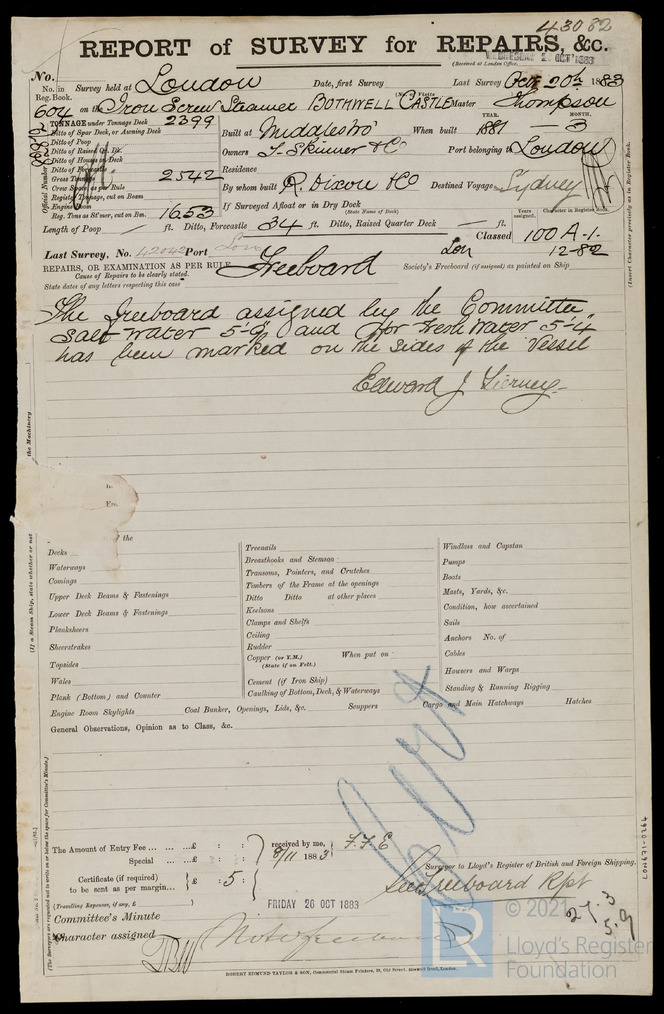 43082
REPORT of SURVEY for REPAIRS, &c.
(Received at London Office, 2 OCT 1883
No.
No. in Reg. Book. Survey held at London Date, first Survey Last Survey Oct 20th 1883
604 on the Iron Screw Steamer BOTHWELL CASTLE Master Thompson
(No. of Visits
TONNAGE under Tonnage Deck 2399
Ditto of Spar Deck, or Awning Deck
Ditto of Poop
Ditto of Raised Qr. Dk.
Ditto of House on Deck
Ditto of Forecastle
Gross Tonnage 2542
Crew Space as per Rule
Register Tonnage, cut on Beam
Engine Room
Reg. Tons as St'mer, cut on Bm. 1653
Official Number
Built at Middlesbro' When built YEAR. 1881 MONTH. 3
Owners T. Skinner & Co Port belonging to London
Residence
By whom built R. Dixon & Co Destined Voyage Sydney
If Surveyed Afloat or in Dry Dock
(State Name of Dock)
Length of Poop — ft. Ditto, Forecastle 34 ft. Ditto, Raised Quarter Deck — ft.
Years assigned. Character in Register Book.
Classed 100 A.1.
Lon 12-82
Last Survey, No. 42042 Port Lon
REPAIRS, OR EXAMINATION AS PER RULE Freeboard
Society's Freeboard (if assigned) as painted on Ship
Cause of Repairs to be clearly stated.
State dates of any letters respecting this case
The Freeboard assigned by the Committee
Salt Water 5'-9" and for Fresh Water 5'-4"
has been marked on the sides of the Vessel
Edward J. Tierney
(Insert Character precisely as in Register Book.
the Machinery
(If a Steam Ship, state whether or not
the
Decks
Waterways
Comings
Upper Deck Beams & Fastenings
Lower Deck Beams & Fastenings
Planksheers
Sheerstrakes
Topsides
Wales
Plank (Bottom) and Counter
Engine Room Skylights
Treenails
Breasthooks and Stemson
Transoms, Pointers, and Crutches
Timbers of the Frame at the openings
Ditto Ditto at other places
Keelsons
Clamps and Shelfs
Ceiling
Rudder
Copper (or Y.M.) When put on
(State if on Felt.)
Cement (if Iron Ship)
Caulking of Bottom, Deck, & Waterways
Coal Bunker, Openings, Lids, &c. Scuppers
Windlass and Capstan
Pumps
Boats
Masts, Yards, &c.
Condition, how ascertained
Sails
Anchors No. of
Cables
Hawsers and Warps
Standing & Running Rigging
Cargo and Main Hatchways Hatches
General Observations, Opinion as to Class, &c.
The Amount of Entry Fee ... ... £ : :
Special ... ... £ : :
Certificate (if required) to be sent as per margin... £ : 5 :
(Travelling Expenses, if any, £
received by me,
8/11 1883
Surveyor to Lloyd's Register of British and Foreign Shipping.
See Freeboard Rpt
27.3
5.9
LON671-0266
(The Surveyors are requested not to write on or below the space for Committee's Minute.)
Committee's Minute FRIDAY 26 OCT 1883
Character assigned Note freeboard
ROBERT EDMUND TAYLOR & SON, Commercial Steam Printers, 19, Old Street, Goswell Road, London.
LR
© 2021
Lloyd's Register
Foundation